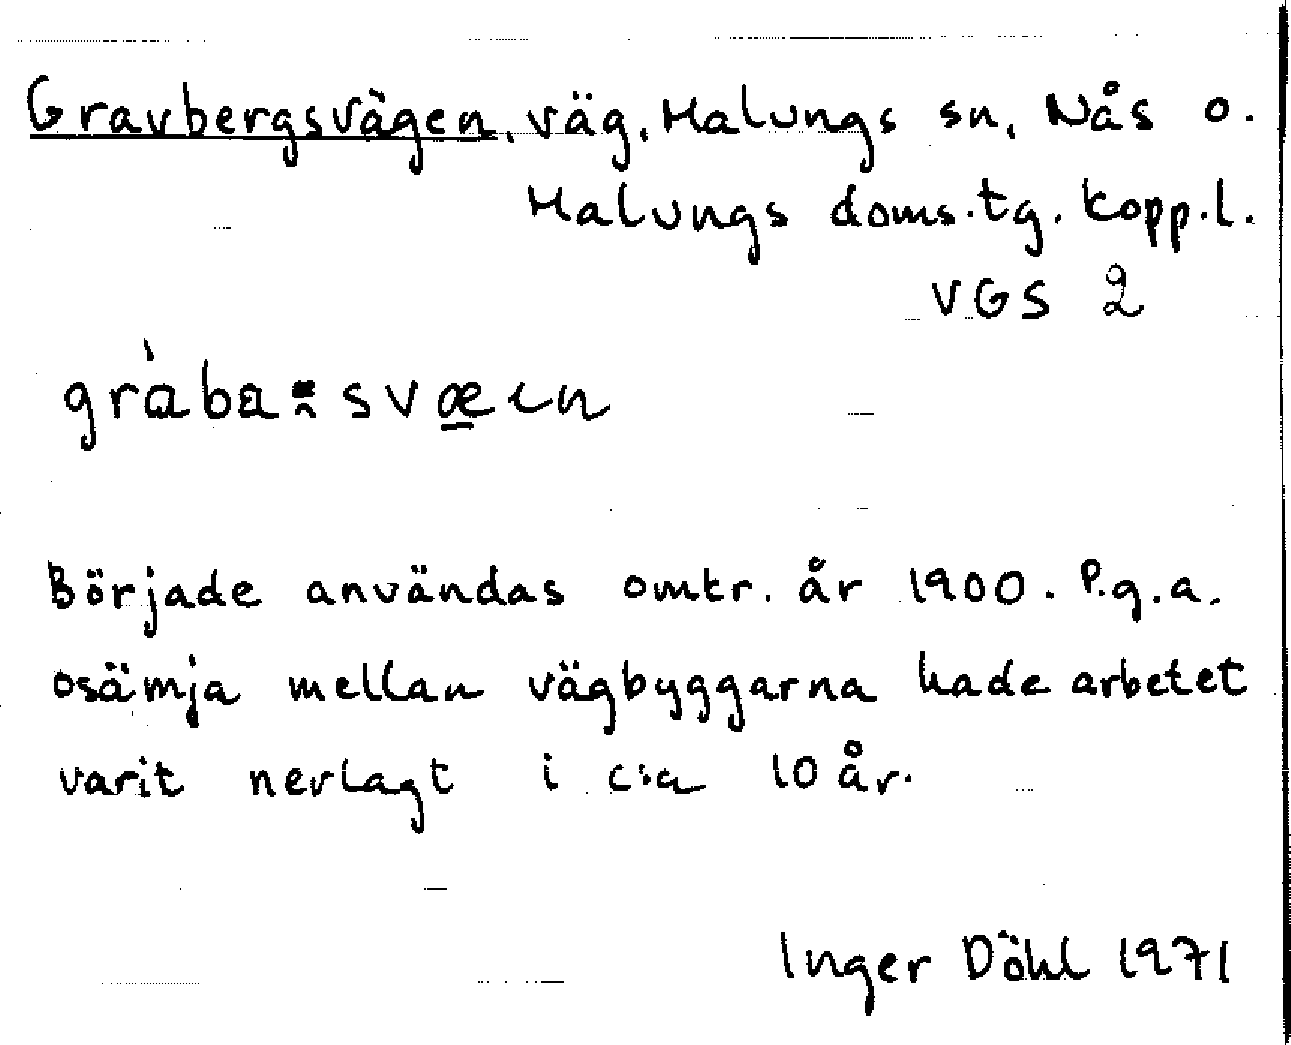 Gravbergsvägen, väg, Malungs sn, Nås o.
Malungs doms.tg. Kopp.l.
VGS 2
Började användas omkr. år 1900. P.g.a.
osämja mellan vägbyggarna hade arbetet
varit nerlagt i c:a 10 år.
Inger Döhl 1971